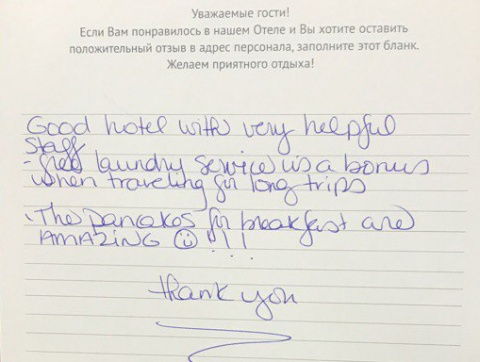 Уважаемые гости!
Если Вам понравилось в нашем Отеле и Вы хотите оставить
положительный отзыв в адрес персонала, заполните этот бланк.
Желаем приятного отдыха!
Good hotel with very helpful
staff
- free laundry service is a bonus
when traveling for long trips
. The pancakes for breakfast are
AMAZING ☺ !!!
thank you